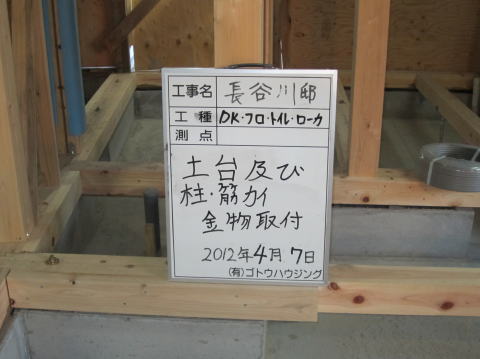 工事名 長谷川邸
工種 DK・フロ・トイレ・ローカ
測点
土台及び
柱・筋カイ
金物取付
2012年4月7日
(有)ゴトウハウジング